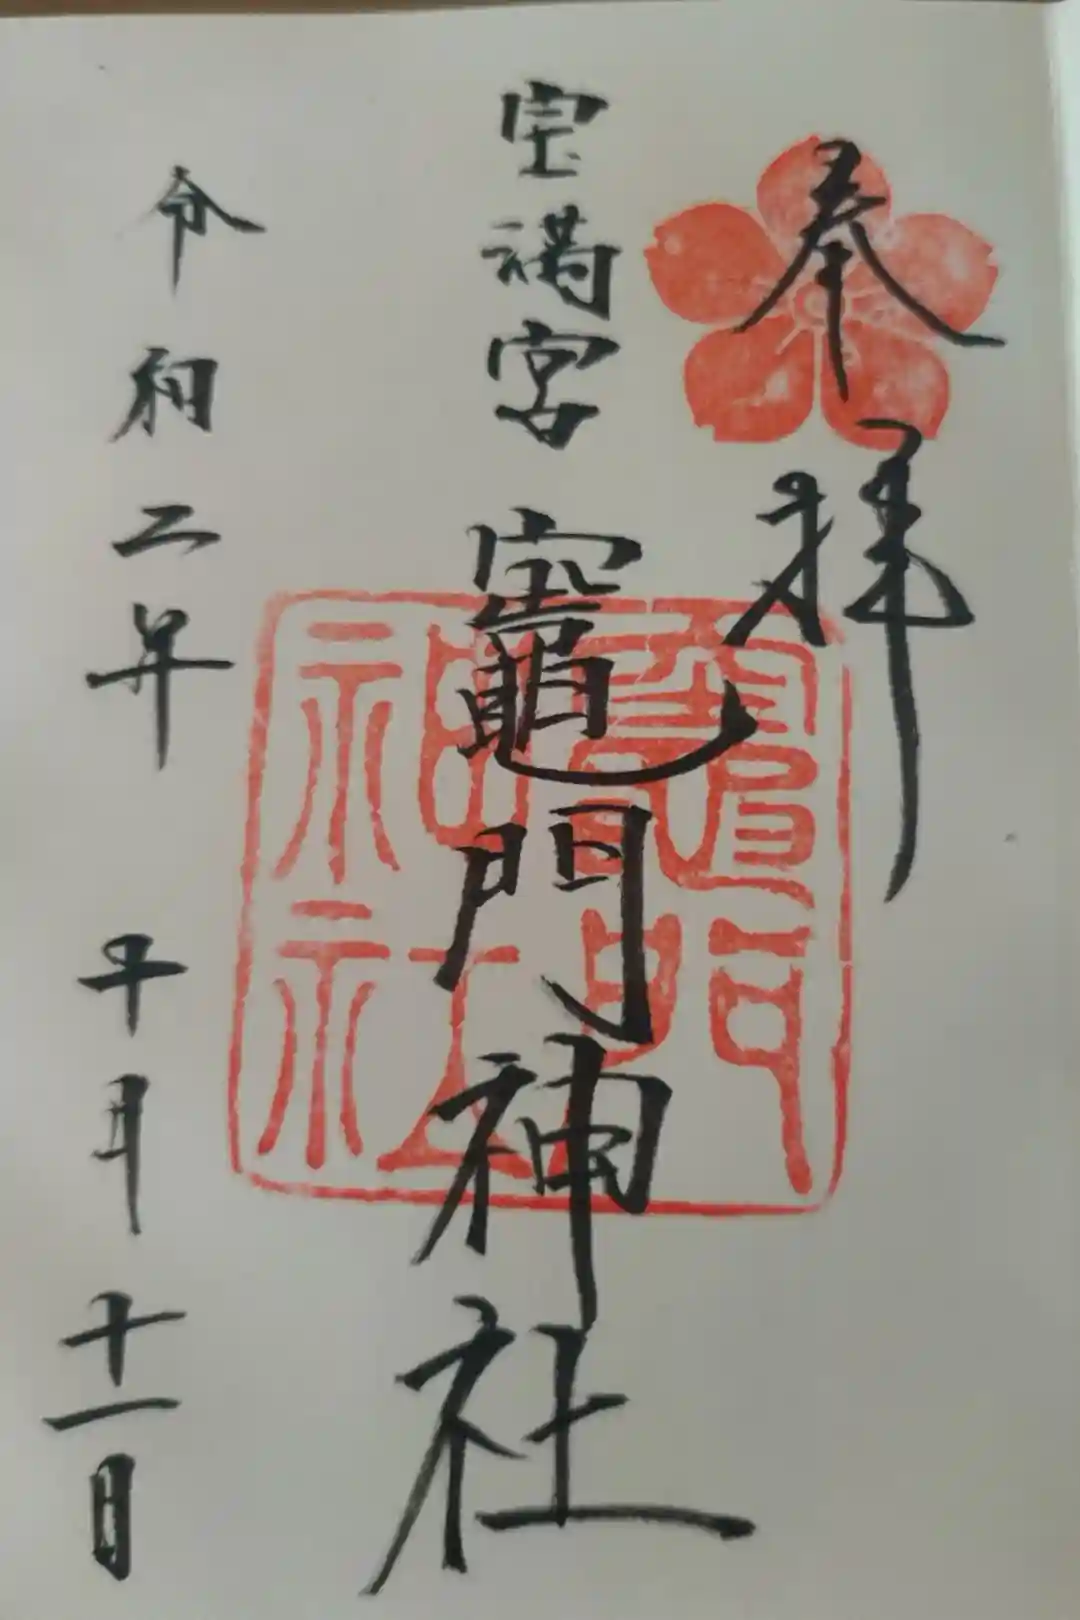 奉拝
宝満宮 竈門神社
令和二年 十月十一日
竈門神社